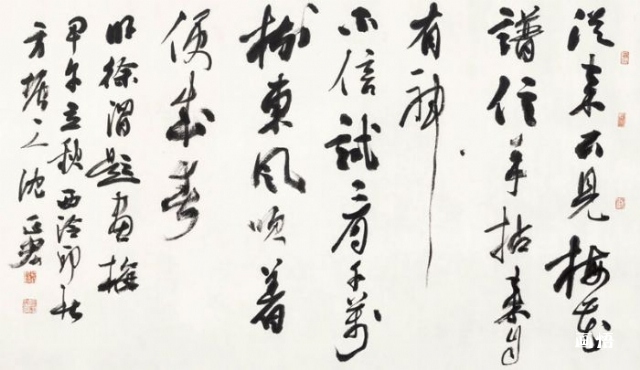 從来不見梅花
譜信手拈来自
有神
不信試看千萬
樹東風吹着
便成春
明徐渭題畫梅
甲午立秋西泠印社
沈